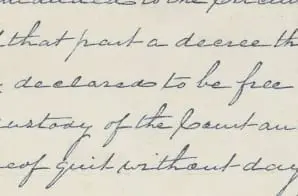 to the
that part a decree th
declared to be free
custody of the Court an
eof quit without day